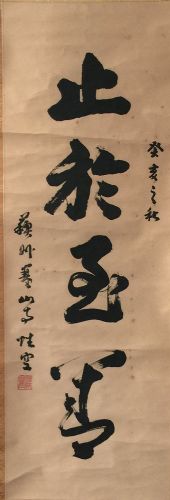 止於至善
癸亥之秋
蘇州寒山寺性空